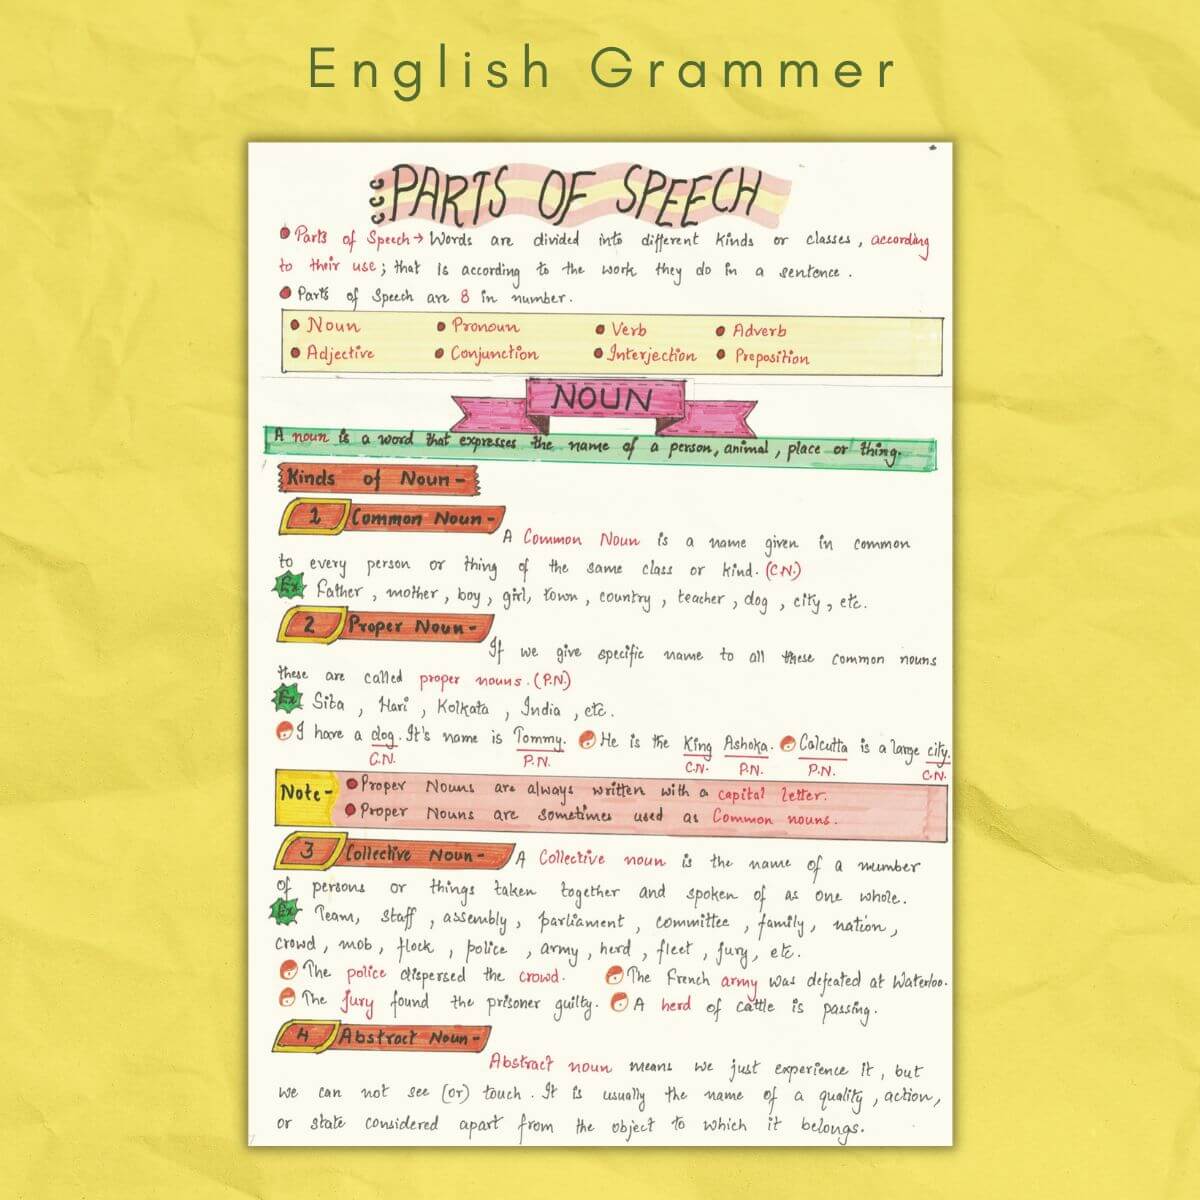 English Grammer
PARTS OF SPEECH
Parts of Speech → Words are divided into different kinds or classes, according
to their use; that is according to the work they do in a sentence.
Parts of Speech are 8 in number.
Noun Pronoun Verb Adverb
Adjective Conjunction Interjection Preposition
NOUN
A noun is a word that expresses the name of a person, animal, place or thing.
Kinds of Noun-
1 Common Noun- A Common Noun is a name given in common
to every person or thing of the same class or kind. (C.N.)
Ex Father, mother, boy, girl, town, country, teacher, dog, city, etc.
2 Proper Noun- If we give specific name to all these common nouns
these are called proper nouns. (P.N.)
Ex Sita, Hari, Kolkata, India, etc.
I have a dog. It's name is Tommy. He is the King Ashoka. Calcutta is a large city.
C.N. P.N. C.N. P.N. P.N. C.N.
Note- Proper Nouns are always written with a capital letter.
Proper Nouns are sometimes used as Common nouns.
3 Collective Noun- A Collective noun is the name of a number
of persons or things taken together and spoken of as one whole.
Ex Team, staff, assembly, parliament, committee, family, nation,
crowd, mob, flock, police, army, herd, fleet, jury, etc.
The police dispersed the crowd. The French army was defeated at Waterloo.
The jury found the prisoner guilty. A herd of cattle is passing.
4 Abstract Noun- Abstract noun means we just experience it, but
we can not see (or) touch. It is usually the name of a quality, action,
or state considered apart from the object to which it belongs.